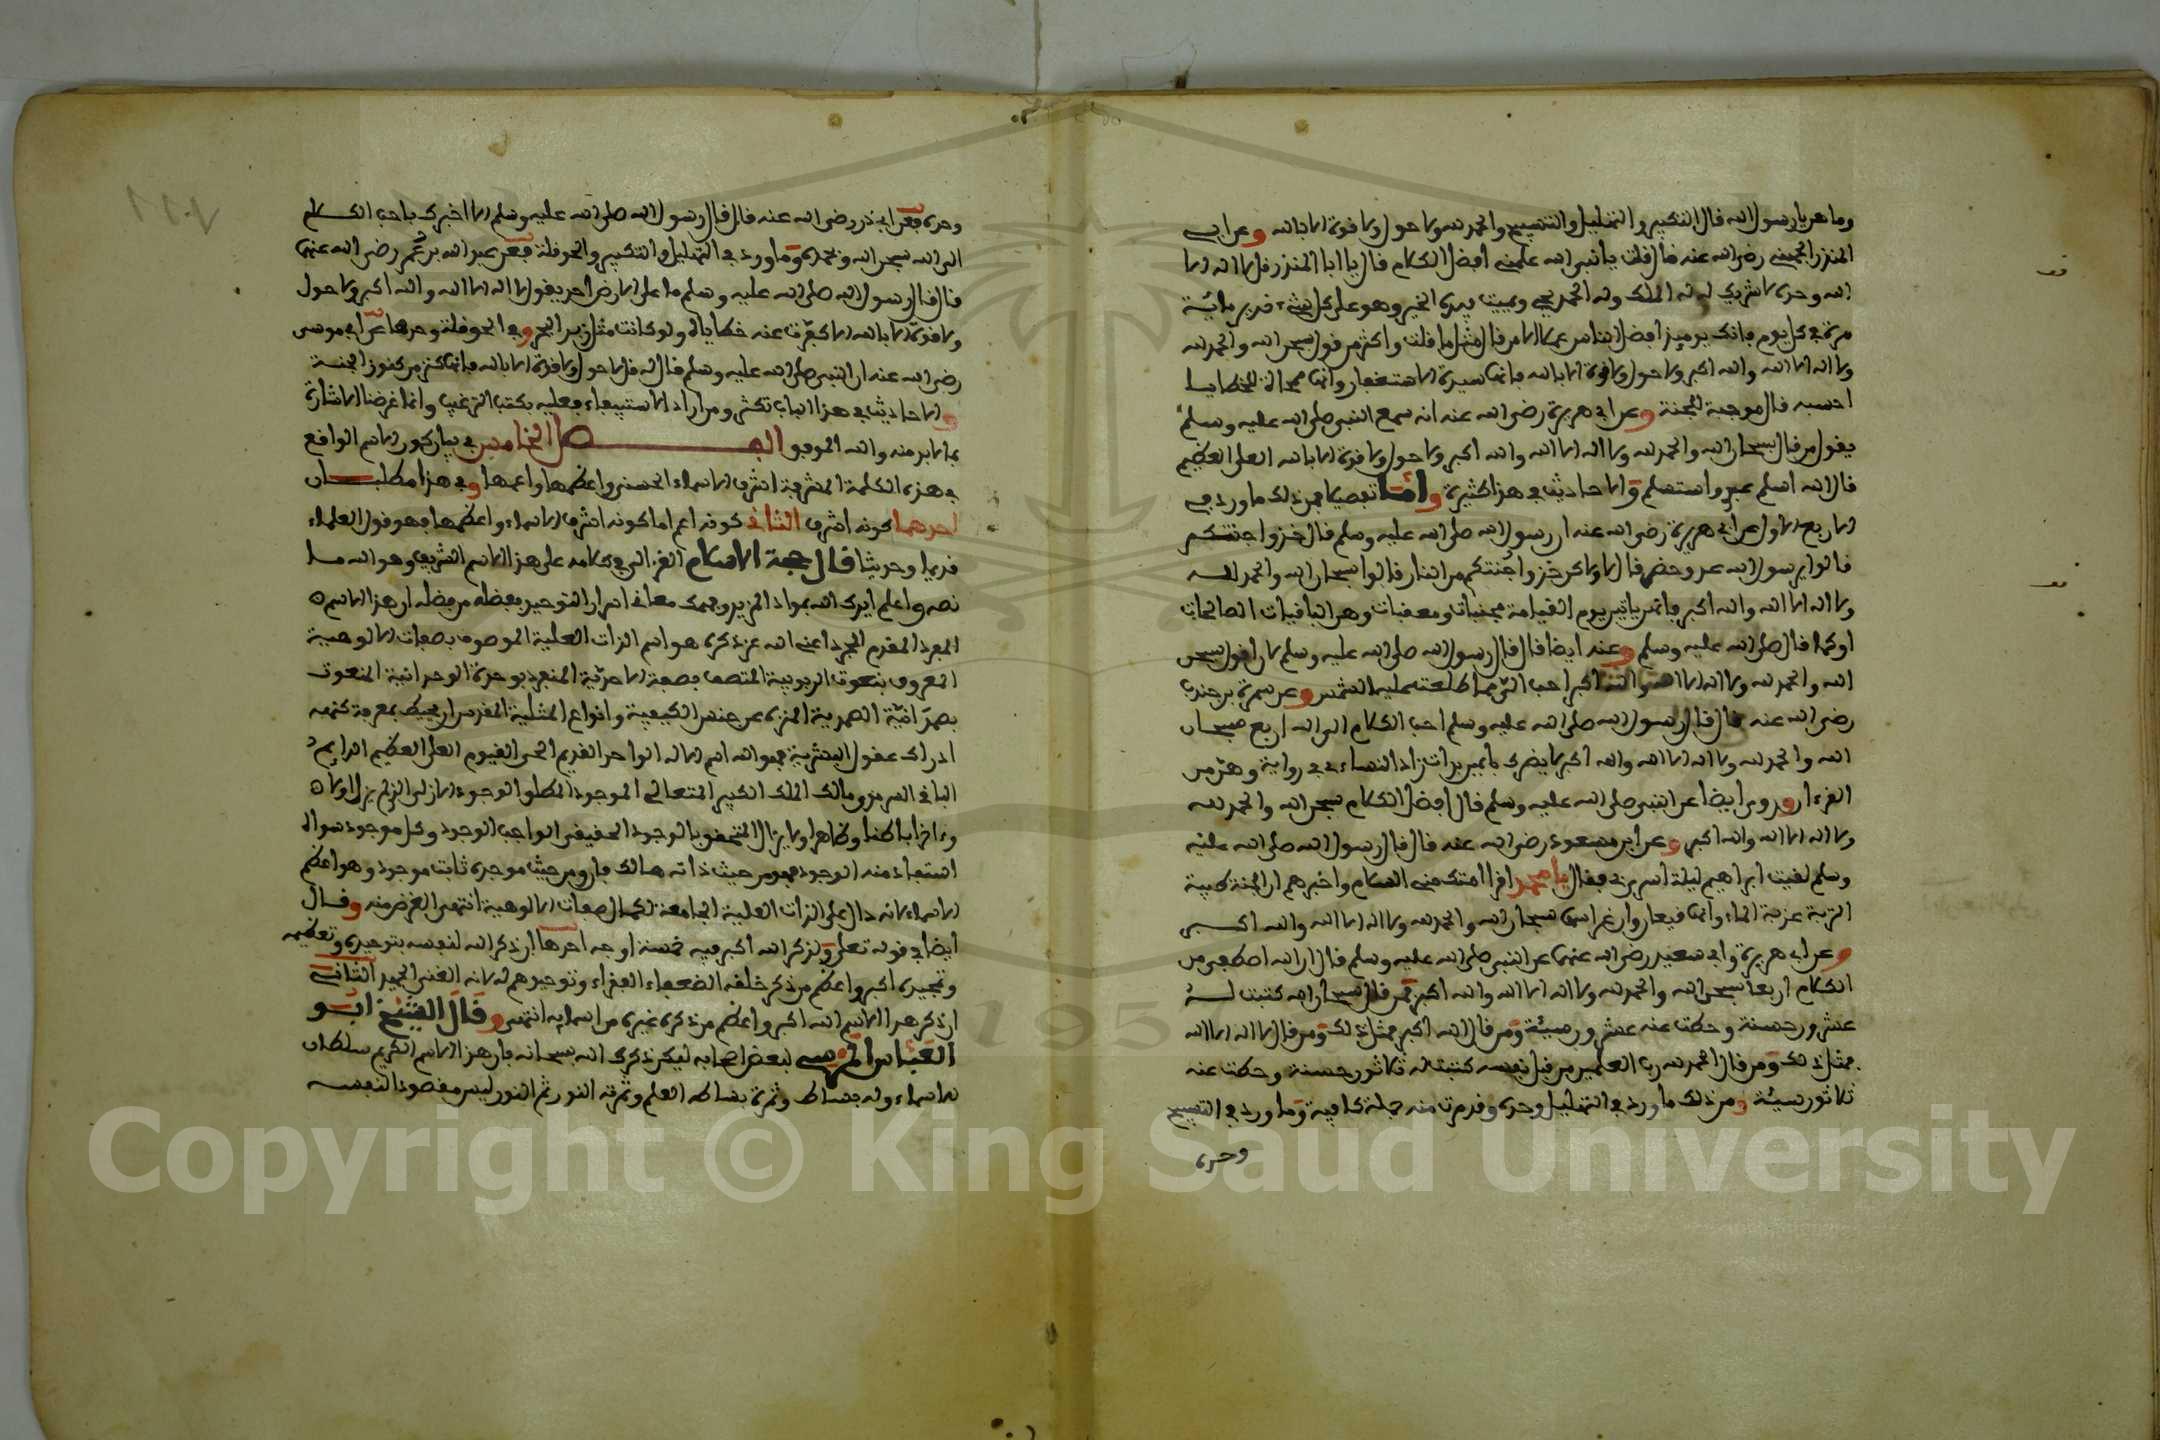 وما هن يا رسول الله قال التكبير والتهليل والتسبيح والحمد لله ولا حول ولا قوة الا بالله وعن ابي
المنذر الجهني رضي الله عنه قال قلت يا نبي الله علمني افضل الكلام قال يا ابا المنذر قل لا اله الا
الله وحده لا شريك له له الملك وله الحمد يحيي ويميت بيده الخير وهو على كل شيء قدير مائة
مرة في كل يوم فانك يومئذ افضل الناس عملا الا من قال مثل ما قلت واكثر من قول سبحن الله والحمد لله
ولا اله الا الله والله اكبر ولا حول ولا قوة الا بالله فانها سيدة الاستغفار وانها ممحاة للخطايا
احسبه قال موجبة للجنة وعن ابي هريرة رضي الله عنه انه سمع النبي صلى الله عليه وسلم
يقول من قال سبحان الله والحمد لله ولا اله الا الله والله اكبر ولا حول ولا قوة الا بالله العلي العظيم
قال الله اسلم عبدي واستسلم والاحاديث في هذا كثيرة واما تفصيلا فمن ذلك ما ورد في
الاربع الاول عن ابي هريرة رضي الله عنه ان رسول الله صلى الله عليه وسلم قال خذوا جنتكم
قالوا يرسول الله عدو حضر قال لا ولاكن خذوا جنتكم من النار قالوا سبحان الله والحمد لله
ولا اله الا الله والله اكبر فانهن ياتين يوم القيامة مجنبات ومعقبات وهن الباقيات الصالحات
او كما قال صلى الله عليه وسلم وعنه ايضا قال قال رسول الله صلى الله عليه وسلم لان اقول سبحن
الله والحمد لله ولا اله الا الله والله اكبر احب الي مما طلعت عليه الشمس وعن سمرة بن جندب
رضي الله عنه قال قال رسول الله صلى الله عليه وسلم احب الكلام الى الله اربع سبحان
الله والحمد لله ولا اله الا الله والله اكبر لا يضرك بايهن بدات زاد النساءي في رواية وهن من
القرءان وروى ايضا عن النبي صلى الله عليه وسلم قال افضل الكلام سبحن الله والحمد لله
ولا اله الا الله والله اكبر وعن ابن مسعود رضي الله عنه قال قال رسول الله صلى الله عليه
وسلم لقيت ابراهيم ليلة اسري بي فقال يا محمد اقرا امتك مني السلام واخبرهم ان الجنة طيبة
التربة عذبة الماء وانها قيعان وان غراسها سبحان الله والحمد لله ولا اله الا الله والله اكبر
وعن ابي هريرة وابي سعيد رضي الله عنهما عن النبي صلى الله عليه وسلم قال ان الله اصطفى من
الكلام اربعا سبحن الله والحمد لله ولا اله الا الله والله اكبر فمن قال سبحان الله كتبت له
عشرون حسنة وحطت عنه عشرون سيئة ومن قال الله اكبر فمثل ذلك ومن قال لا اله الا الله
فمثل ذلك ومن قال الحمد لله رب العلمين من قبل نفسه كتبت له ثلاثون حسنة وحطت عنه
ثلاثون سيئة ومن ذلك ما ورد في التهليل وحده وقدمت منه جملة كافية وما ورد في التسبيح
وحده
وحده فعن ابي ذر رضي الله عنه قال قال رسول الله صلى الله عليه وسلم الا اخبرك باحب الكلام
الى الله سبحن الله وبحمده وما ورد في التهليل والتكبير والحوقلة فعن عبد الله بن عمر رضي الله عنهما
قال قال رسول الله صلى الله عليه وسلم ما على الارض احد يقول لا اله الا الله والله اكبر ولا حول
ولا قوة الا بالله الا كفرت عنه خطاياه ولو كانت مثل زبد البحر وفي الحوقلة وحدها عن ابي موسى
رضي الله عنه ان النبي صلى الله عليه وسلم قال له قل لا حول ولا قوة الا بالله فانها كنز من كنوز الجنة
والاحاديث في هذا الباب تكثر ومن اراد الاستيفاء فعليه بكتب الترغيب وانما غرضنا الاشارة
بما لا بد منه والله الموفق الفصل الخامس في بيان كون الاسم الواقع
في هذه الكلمة المشرفة اشرف الاسماء الحسنى واعظمها واعمها وفي هذا مطلبان
احدهما كونه اشرف الثاني كونه اعم اما كونه اشرف الاسماء واعظمها فهو قول العلماء
قديما وحديثا قال حجة الاسلام الغزالي في كلامه على هذا الاسم الشريف وهو الله ما
نصه واعلم ايدك الله بمواد المزيد وفهمك معاني اسرار التوحيد بفضله من فضله ان هذا الاسم
المفرد المقدم المجرد اعني الله عز ذكره هو اسم الذات العلية الموصوف بصفات الالوهية
المعروف بنعوت الربوبية المتصف بصفة الاحدية المنفرد بوحدة الوحدانية المنعوت
بصمدانية الصمدية المنزه عن جنس الكيفية وانواع المثلية المقدس ان يحيط بمعرفة كنهه
ادراك عقول البشرية فهو الله اسم الاله الواحد القديم الحي القيوم العلي العظيم الدايم
الباقي السرمدي مالك الملك الكبير المتعالي الموجود المطلق الوجود الازلي الذي لم يزل اولا
وءاخرا باطنا وظاهرا ولا يزال المتحقق بالوجود الحقيقي الواجب الوجود وكل موجود سواه
استفاد منه الوجود فهو من حيث ذاته هالك فان ومن حيث موجده ثابت موجود وهو اعظم
الاسماء لانه دال على الذات العلية الجامعة لكمال صفات الالوهية انتهى الغرض منه وقال
ايضا في قوله تعلى ولذكر الله اكبر فيه خمسة اوجه احدها ان ذكر الله لنفسه بتوحيده وتعظيمه
وتمجيده اكبر واعظم من ذكر خلقه الضعفاء الفقراء وتوحيدهم له لانه الغني الحميد الثاني
ان ذكر هذا الاسم الله اكبر واعظم من ذكر غيره من اسمايه انتهى وقال الشيخ ابو
العباس المرسي لبعض اصحابه ليكن ذكرك الله سبحانه فان هذا الاسم الكريم سلطان
الاسماء وله بساط وثمرة بساطه العلم وثمرته النور ثم النور ليس مقصودا لنفسه
Copyright © King Saud University
195